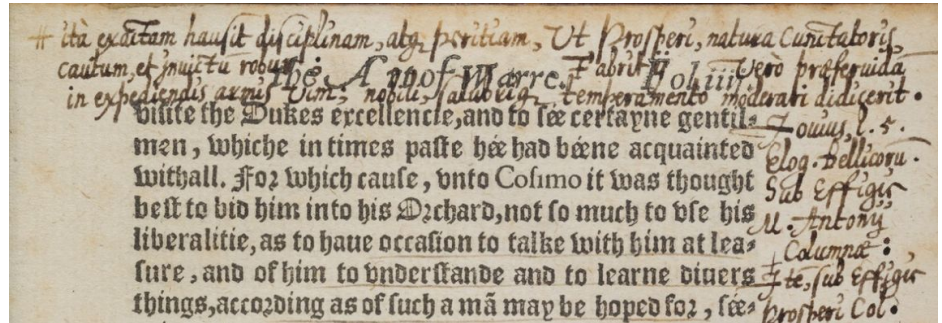 # ità exactam hausit disciplinam, atq peritiam, Ut Prosperi, natura Cunctatoris,
cautum, et invictū robur, Fabritij Verò præfervida
The Art of Warre. Fol. iii
in expediendis armis Vim; nobili, salubriq temperamento moderari didicerit.
visite the Dukes excellencie, and to sée certayne gentil-
men, whiche in times paste hée had béene acquainted
withall. For which cause, vnto Cosimo it was thought
best to bid him into his Orchard, not so much to vse his
liberalitie, as to haue occasion to talke with him at lea-
sure, and of him to vnderstande and to learne diuers
things, according as of such a mā may be hoped for, sée-
Iovius, l. 5.
Elog. Bellicorū.
Sub Effigie
M. Antonij
Columnæ:
Ite, sub Effigie
Prosperi Col.